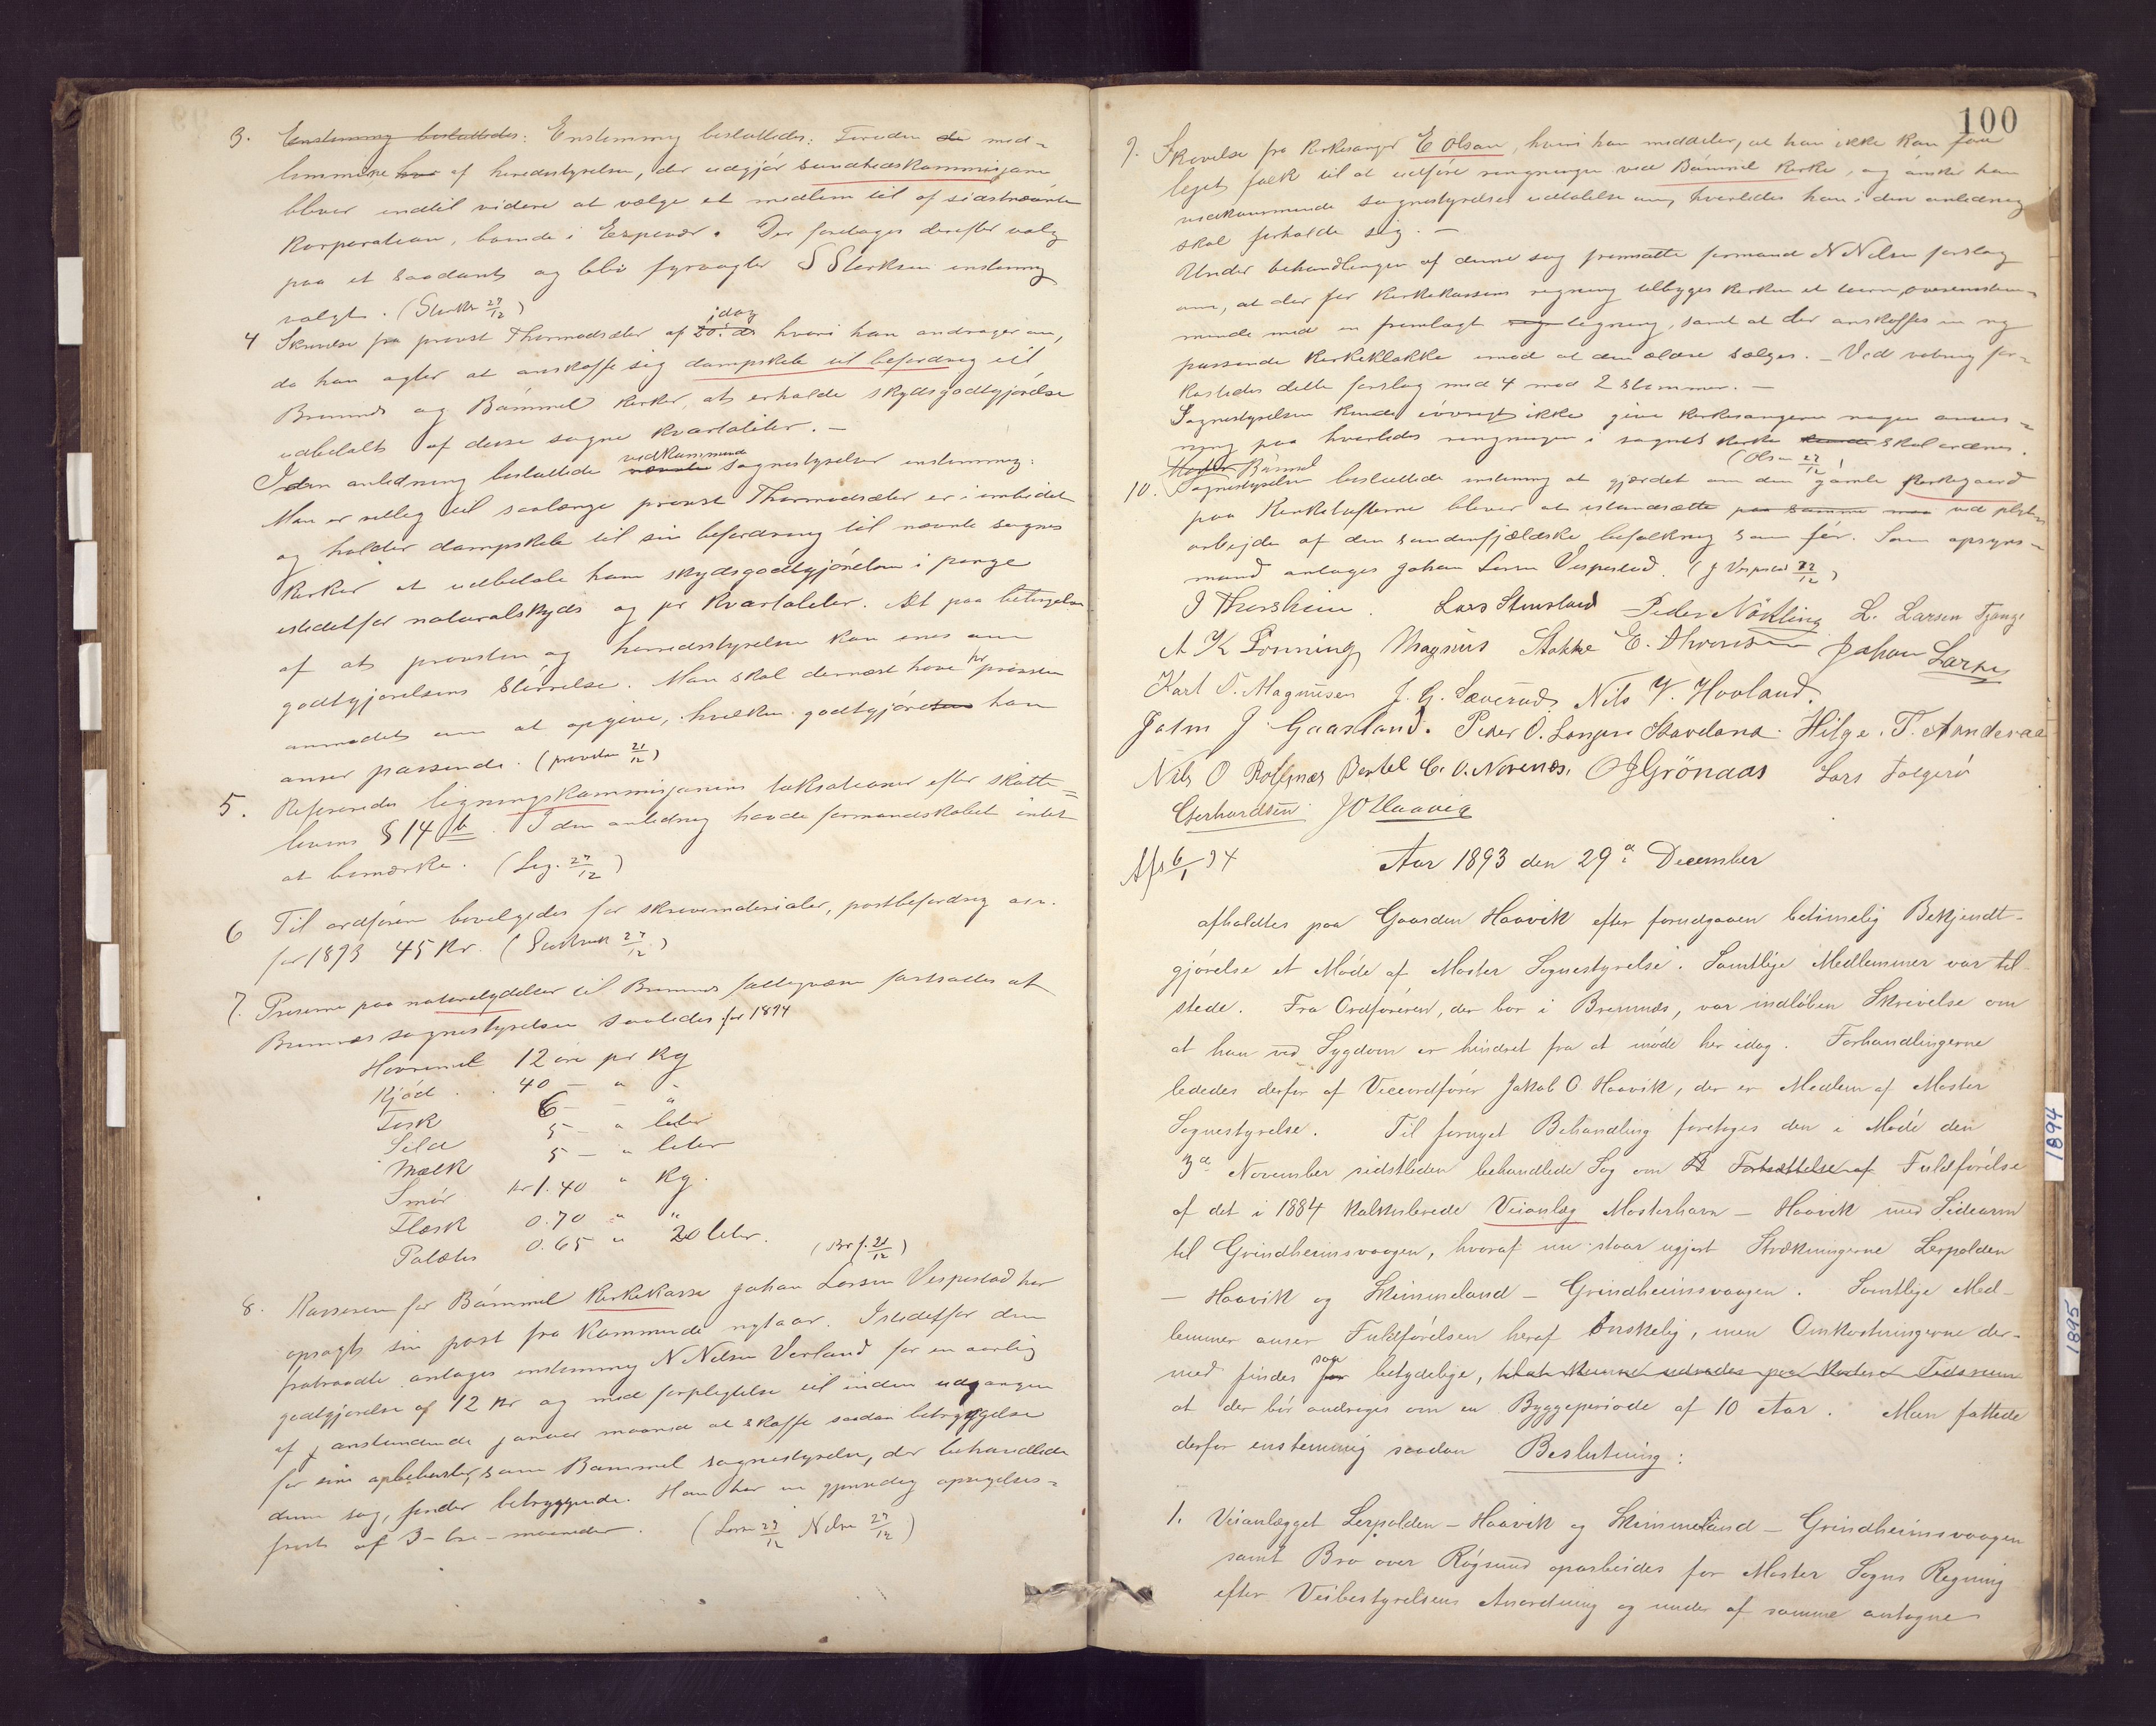 3. Enstemmig besluttedes: Enstemmig besluttedes: Foruden de med-
lemmerne hvor af herredsstyrelsen, der udgjör sundhedskommisjonen
bliver indtil videre at vælge et medlem til af sidstnævnte
korporation, boende i Espevær. Der foretages derefter valg
paa et saadant og blev fyrvogter S Storksen enstemmig
valgt. (Storks 27/12)
4 Skrivelse fra provst Thormodsæter af 20. ds idag hvori han andrager om,
da han agter at anskaffe sig dampskib til befordring til
Bremnes og Bömmel kirker, at erholde skydsgodtgjörelse
udbetalt af disse sogne kvartaliter. —
I den anledning besluttede nævnte vedkommende sognestyrelser enstemmig:
Man er villig til saalænge provst Thormodsæter er i embedet
og holder dampskib til sin befordring til nævnte sognes
kirker at udbetale ham skydsgodtgjörelsen i penge
istedetfor naturalskyds og pr kvartaliter. Alt paa betingelse
af at provsten og herredsstyrelsen kan enes om
godtgjörelsens störrelse. Man skal dernæst have hr provsten
anmodet om at opgive, hvilken godtgjörelse han
anser passende. (provsten 21/12)
5. Refereredes ligningskommisjonens taksationer efter skatte-
lovens § 14 b. I den anledning havde formandskabet intet
at bemærke. (Lig. 27/12)
6 Til ordföreren bevilgedes for skrivematerialer, postbefordring osv.
for 1893 45 kr. ( 27/12)
7. Priserne paa naturalydelser til Bremnes fattigvæsen fastsattes af
Bremnes sognestyrelsen saaledes for 1894
Havremel 12 öre pr kg
Kjöd . . 40 — " "
Fisk 6 — — "
Sild 5 — " liter
Mælk 5 — " liter
Smör kr 1.40 " kg.
Flæsk 0.70 " "
Potæter 0.65 " 20 liter. (Br f. 21/12)
8. Kassereren for Bömmel kirkekasse Johan Larsen Vespestad har
opsagt sin post fra kommende nytaar. Istedetfor den
fratraadte antages enstemmig N Nilsen Vorland for en aarlig
godtgjörelse af 12 kr og med forpligtelse til inden udgangen
af j anstundende januar maaned at skaffe saadan betryggelse
for sine opbebörsler, som Bömmel sognestyrelse, der behandlede
denne sag, finder betryggende. Han har en gjensidig opsigelses-
frist af 3-tre-maaneder. (Larsen 27/12 Nilsen 27/12)
100
9. Skrivelse fra kirkesanger E Olsen, hvori han meddeler, at han ikke kan faa
leiget folk til at udföre ringningen ved Bömmel kirke, og önsker han
vedkommende sognestyrelses udtalelse om, hvorledes han i den anledning
skal forholde sig. —
Under behandlingen af denne sag fremsatte formand N Nilsen forslag
om, at der for kirkekassens regning tilbygges kirken et taarn, overensstem-
mende med en fremlagt regn tegning, samt at der anskaffes en ny
passende kirkeklokke imod at den ældre sælges. – Ved votering for-
kastedes dette forslag med 4 mod 2 stemmer. —
Sognestyrelsen kunde iövrigt ikke give kirkesangeren nogen anvis-
ning paa hvorledes ringningen i sognets kirke kunde skal ordnes.
(Olsen 27/12)
10. Moster Bömmel Sognestyrelsen besluttede enstemmig at gjærdet om den gamle kirkegaard
paa Kirketufterne bliver at istandsætte paa samme maa ved pligts-
arbejde af den söndenfjældske befolkning som för. Som opsyns-
mand antages Johan Larsen Vespestad. (J Vespestad 22/12)
J Thorsheim. Lars Stensland Peder Nökling L. Larsen Tjong.
A K Fönning Magnus Stokke E. Thoresen Johan Larsen
Karl T. Magnusen J. G. Sæverud. Nils V. Hovland.
John J Gaasland. Peder O. Stavland. Hilge. T. Aandevae
Nils O Bertel C. O. Norenæs. O J Grönaas Lars Folgerö
Gerhardsen J O Haavig
Afs 6/1 94 Aar 1893 den 29de December
afholdtes paa Gaarden Haavik efter forudgaaen betimelig Bekjendt-
gjörelse et Möde af Moster Sognestyrelse. Samtlige Medlemmer var til-
stede. Fra Ordföreren, der bor i Bremnæs, var indlöben Skrivelse om
at han ved Sygdom er hindret fra at möde her idag. Forhandlingerne
lededes derfor af Viceordförer Jakob O. Haavik, der er Medlem af Moster
Sognestyrelse. Til fornyet Behandling foretoges den i Möde den
3de November sidstleden behandlede Sag om Fortsættelse af Fuldförelse
af det i 1884 kalkulerede Veianlæg Mosterhavn – Haavik med Sidearm
til Grindheimsvaagen, hvoraf nu staar ugjort Strækningerne Lerpolden
– Haavik og Skimmeland – Grindheimsvaagen. Samtlige Med-
lemmer anser Fuldförelsen heraf önskelig, men Omkostningerne der-
med findes for saa betydelige, til at kunne udredes paa kortere Tidsrum
at der bör andrages om en Byggeperiode af 10 Aar. Man fattede
derfor enstemmig saadan Beslutning:
1. Veianlægget Lerpolden – Haavik og Skimmeland – Grindheimsvaagen
samt Bro over Rögsund oparbeides for Moster Sogns Regning
efter Veibestyrelsens Anordning og under af samme antagne
1894
1895